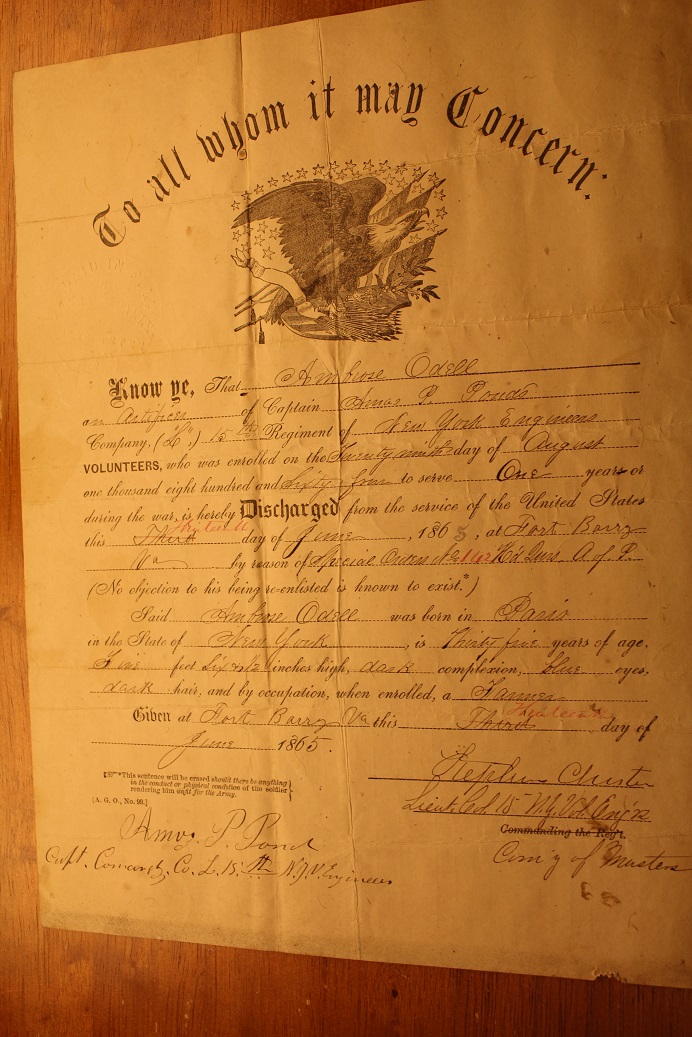 To all whom it may Concern:
Know ye, That Ambrose Odell
an Artificer of Captain Amos P. Ponds
Company, (L,) 15th Regiment of New York Engineers
VOLUNTEERS, who was enrolled on the Twenty ninth day of August
one thousand eight hundred and Sixty four to serve One years or
during the war, is hereby Discharged from the service of the United States
this Third day of June, 1865, at Fort Barry
Va by reason of Special Orders No Hd Qrs A of P.
(No objection to his being re-enlisted is known to exist.*)
Said Ambrose Odell was born in Paris
in the State of New York, is Thirty five years of age,
Five feet Six 1/2 inches high, dark complexion, blue eyes,
dark hair, and by occupation, when enrolled, a Farmer
Given at Fort Barry Va this Third day of
June 1865.
*This sentence will be erased should there be anything
in the conduct or physical condition of the soldier
rendering him unfit for the Army.
[A. G. O., No. 99.]
Amos P. Pond
Capt. Comdg. Co. L. 15th N.Y.V. Engineers
Lieut. Col 15 N.Y. Vol Eng'rs
Commanding the Reg't.
Com'y of Musters